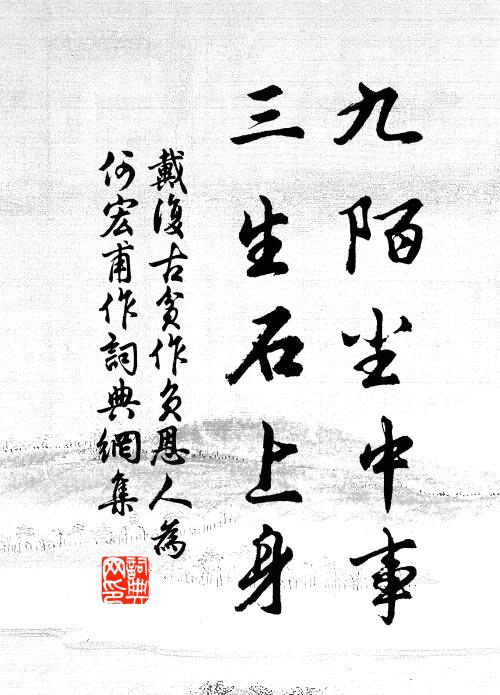 九陌尘中事
三生石上身
戴復古貧作負恩人為
何宏甫作詞典網集
詞典
网印